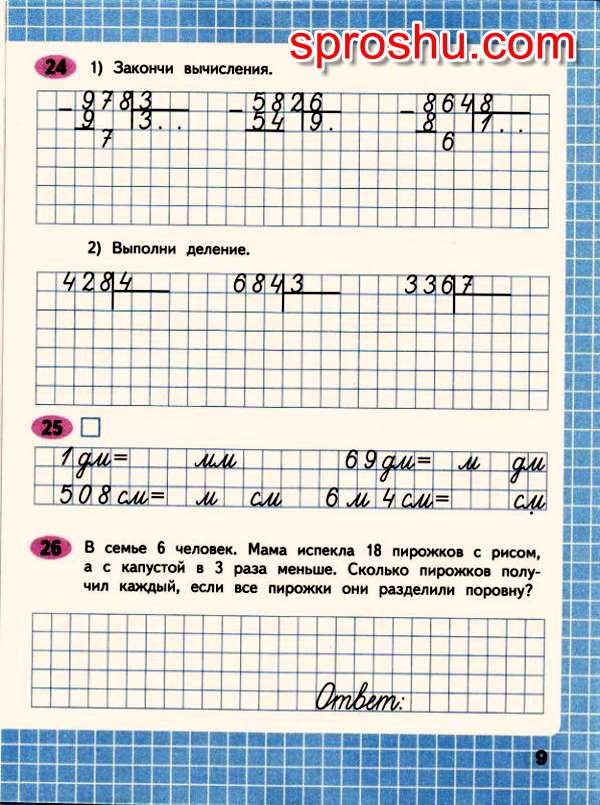 sproshu.com
24 1) Закончи вычисления.
978 3 582 6 864 8
9 3.. 54 9. 8 1..
7 6
2) Выполни деление.
428 4 684 3 336 7
25
1 дм= мм 69 дм= м дм
508 см= м см 6 м 4 см= см
26 В семье 6 человек. Мама испекла 18 пирожков с рисом,
а с капустой в 3 раза меньше. Сколько пирожков полу-
чил каждый, если все пирожки они разделили поровну?
Ответ:
9